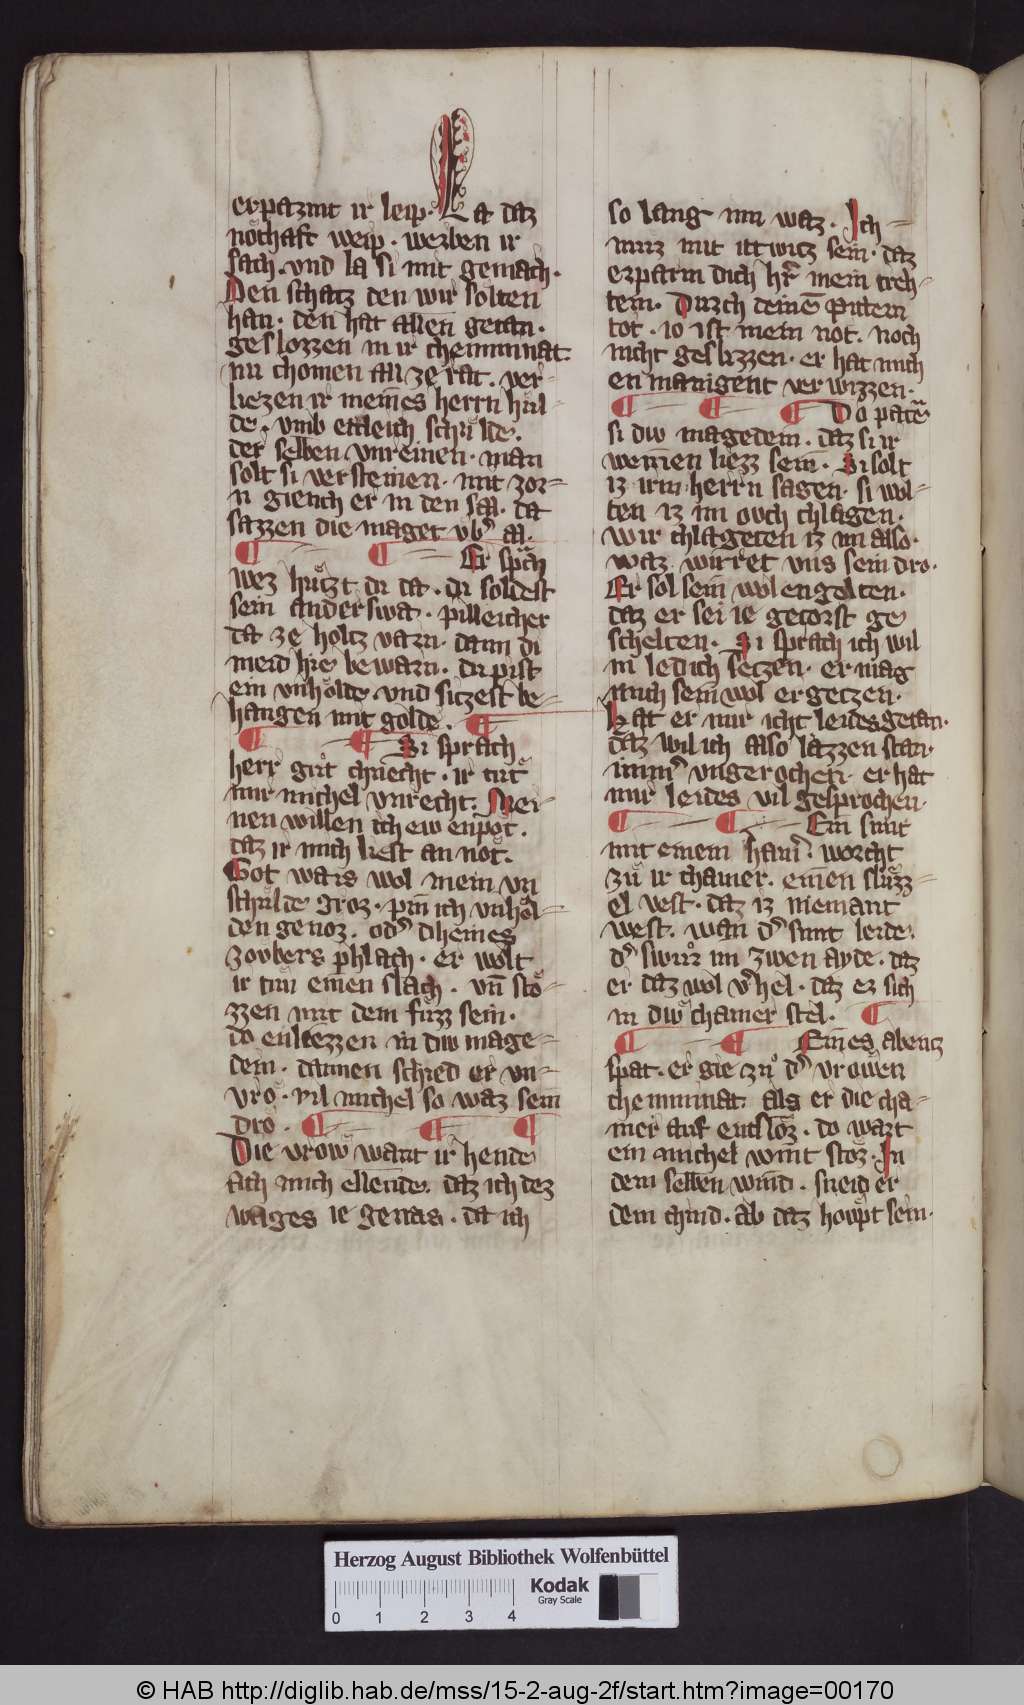 erpazmt ir leip. La daz
nothaft weip. werben ir
sach. vnd la si mit gemach.
Den schatz den wir solten
han. den hat allen getan.
geslozzen in ir cheminnat.
nu chomen all ze rat. ver=
liezen ir meines herrn hul=
de. vmb etleich schulde.
der selben vnreinen. man
solt si versteinen. mit zor=
n giench er in den sal. da
sazzen die maget vb' al.
Er sprach
wez hutzt du da. du soldest
sein anderswa. pilleicher
da ze holtz varn. dann di
meid hie bewarn. du pist
ein vnholde. vnd sitzest be=
hangen mit golde.
Si sprach
herr gut chnecht. ir tut
mir michel vnrecht. Mei=
nen willen ich ew enpot.
daz ir mich liest an not.
Got wais wol mein vn
schulde groz. pin ich vnhol=
den genoz. od' dheines
zoubers phlach. er wolt
ir tun einen slach. vn sto=
zzen mit dem fuzz sein.
do enliezzen in diw mage=
dein. dannen schied er vn=
vro. vil michel so waz sein
dro.
Die vrow want ir hende
ach mich ellende. daz ich dez
wages ie genas. da ich
so lang inn waz. Ich =
muz mit ittwitz sein. daz
erparm dich hr mein treh=
tein. Durch deine pittern
tot. io ist mein not. noch
nicht geslizzen. er hat mich
en manigent verwizzen.
Do pate
si diw magedein. daz si ir
weinen liezz sein. Si solt
iz irm herrn sagen. si wol=
ten iz im ouch chlagen.
wir chlageten iz im also.
waz wirret vns sein dro.
Er sol sein wol engelten.
daz er sei ie getorst ge
schelten. Si sprach ich wil
in ledich setzen. er mag
mich sein wol ergetzen.
hat er mir icht leides getan.
daz wil ich also lazzen stan.
imm' vngerochen. er hat
mir leides vil gesprochen.
Ein smit
mit einem ham'. worcht
zu ir chamer. einen sluzz=
el vest. daz iz niemant
west. wan d' sunt leide.
d' swur im zwen ayde. daz
er daz wol v'hel. daz ez sich
in diw chamer stel.
Eines abentz
spat. er gie zu d' vrowen
cheminnat. als er die cha=
mer auf entsloz. do wart
ein michel wint stoz. In
dem selben wind. sneid er
dem chind. ab daz houpt sein.
Herzog August Bibliothek Wolfenbüttel
Kodak
Gray Scale
0 1 2 3 4
© HAB http://diglib.hab.de/mss/15-2-aug-2f/start.htm?image=00170